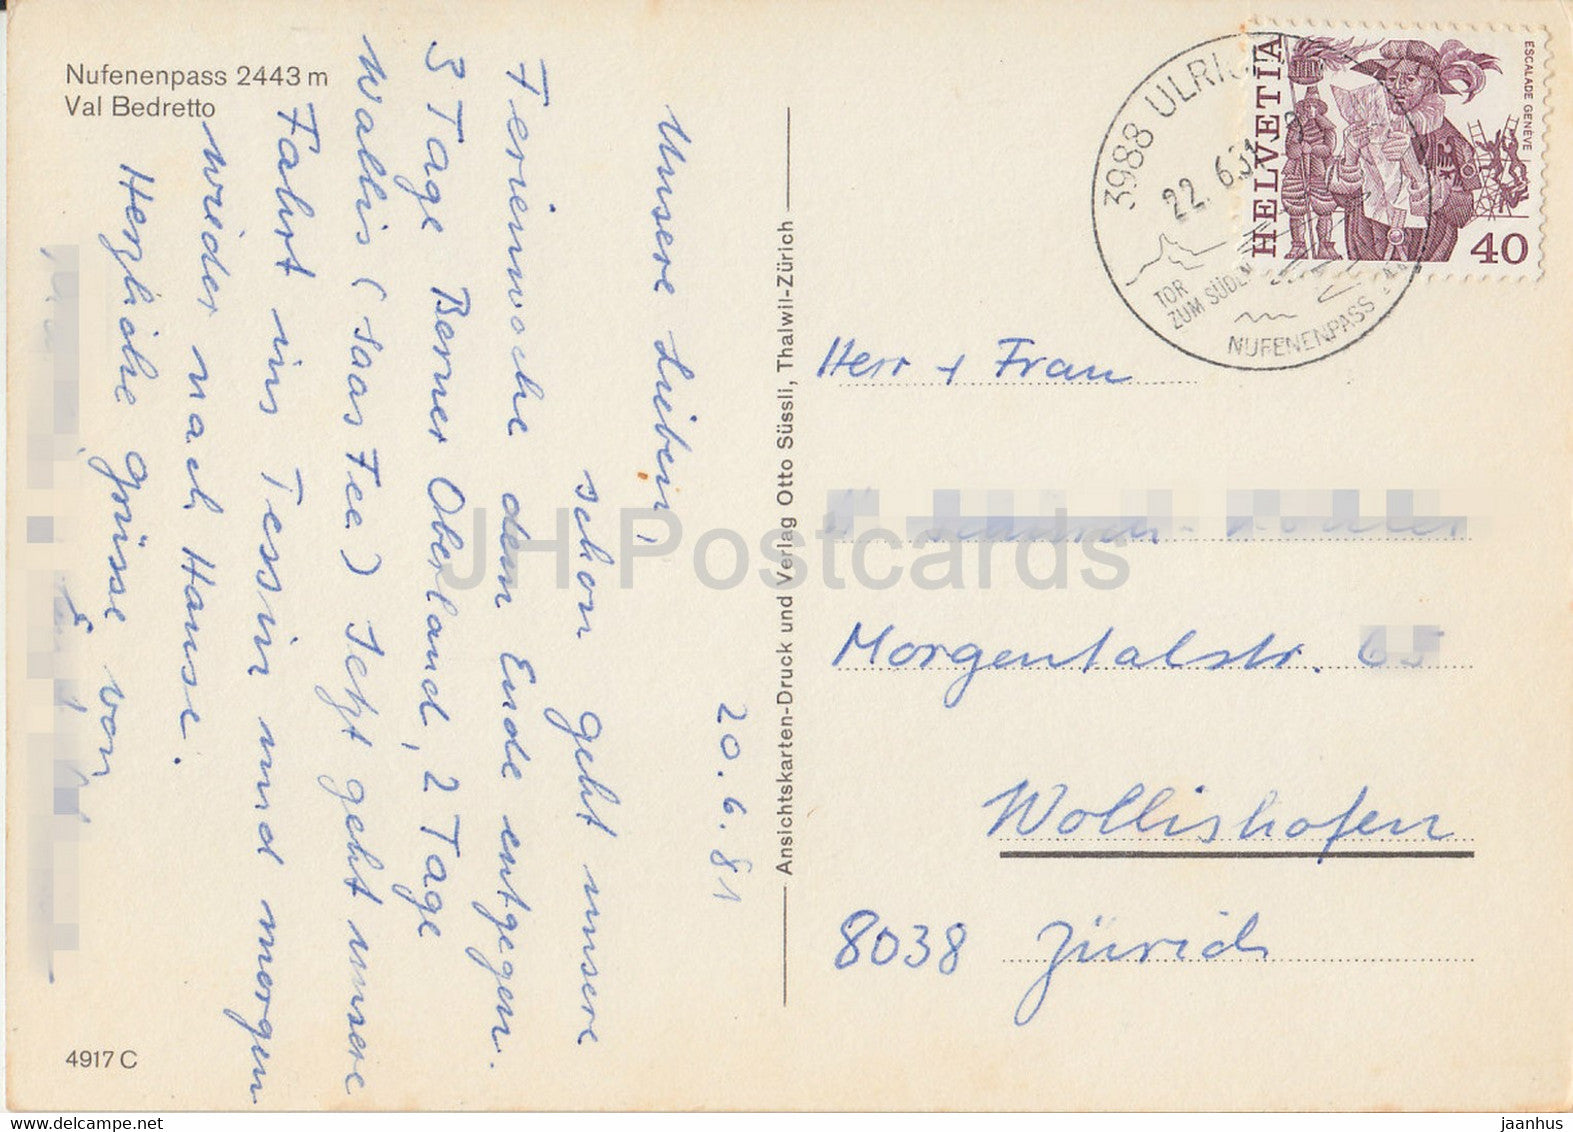 Nufenenpass 2443 m
Val Bedretto
20.6.81
Unsere Lieben,
schon geht unsere
Ferienwoche dem Ende entgegen.
3 Tage Berner Oberland, 2 Tage
Wallis (Saas Fee) Jetzt geht unsere
Fahrt ins Tessin und morgen
wieder nach Hause.
Herzliche Grüsse von
4917 C
Ansichtskarten-Druck und Verlag Otto Süssli, Thalwil-Zürich
3988 ULRI
22.6.81
TOR
ZUM SÜDEN
NUFENENPASS
HELVETIA
ESCALADE GENÈVE
40
Herr + Frau
Morgentalstr.
Wollishofen
8038 Zürich
JH Postcards
jaanhus
www.delcampe.net